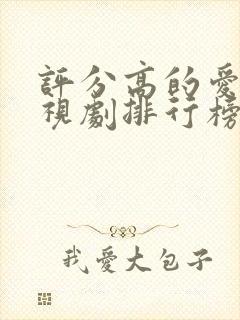 評分高的愛
視劇排行榜
我愛大包子